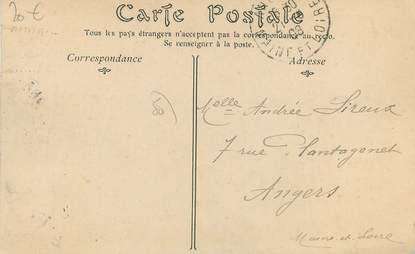 20 €
Carte Postale
Tous les pays étrangers n'acceptent pas la correspondance au recto.
Se renseigner à la poste.
Correspondance
Adresse
80
Melle Andrée Sireux
7 rue Plantagenet
Angers
Maine-et-Loire